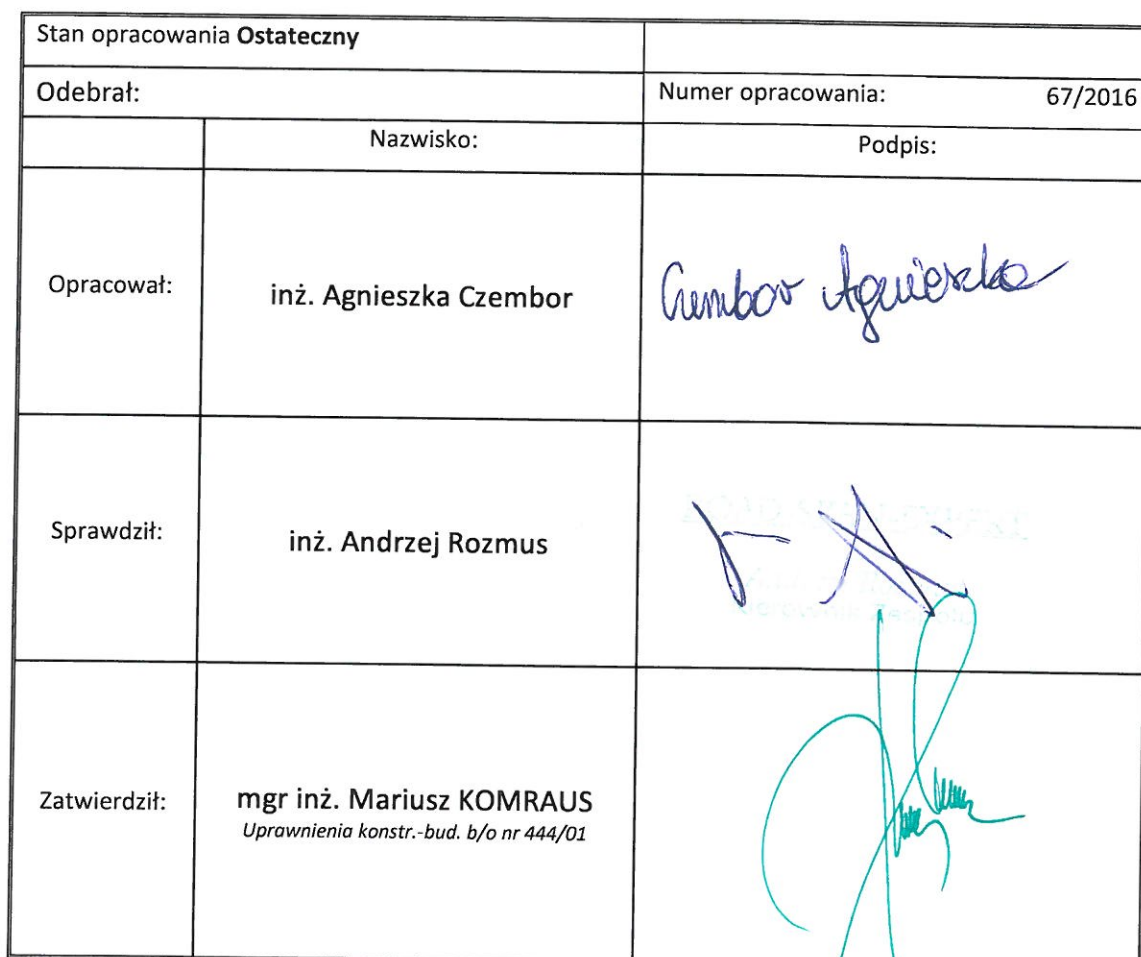 Stan opracowania Ostateczny
Odebrał:
Numer opracowania: 67/2016
Nazwisko:
Podpis:
Opracował:
inż. Agnieszka Czembor
Czembor Agnieszka
Sprawdził:
inż. Andrzej Rozmus
Zatwierdził:
mgr inż. Mariusz KOMRAUS
Uprawnienia konstr.-bud. b/o nr 444/01